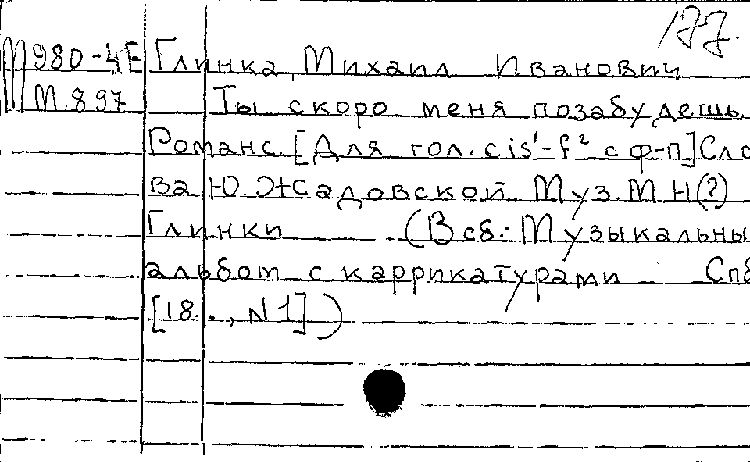 177.
М980-4Е Глинка, Михаил Иванович
М.897 Ты скоро меня позабудешь.
Романс [Для гол. cis¹-f² с ф-п] Сло
ва Ю. Жадовской Муз. М Н(?)
Глинки (В сб.: Музыкальны
альбом с каррикатурами Спб
[18.., N1])